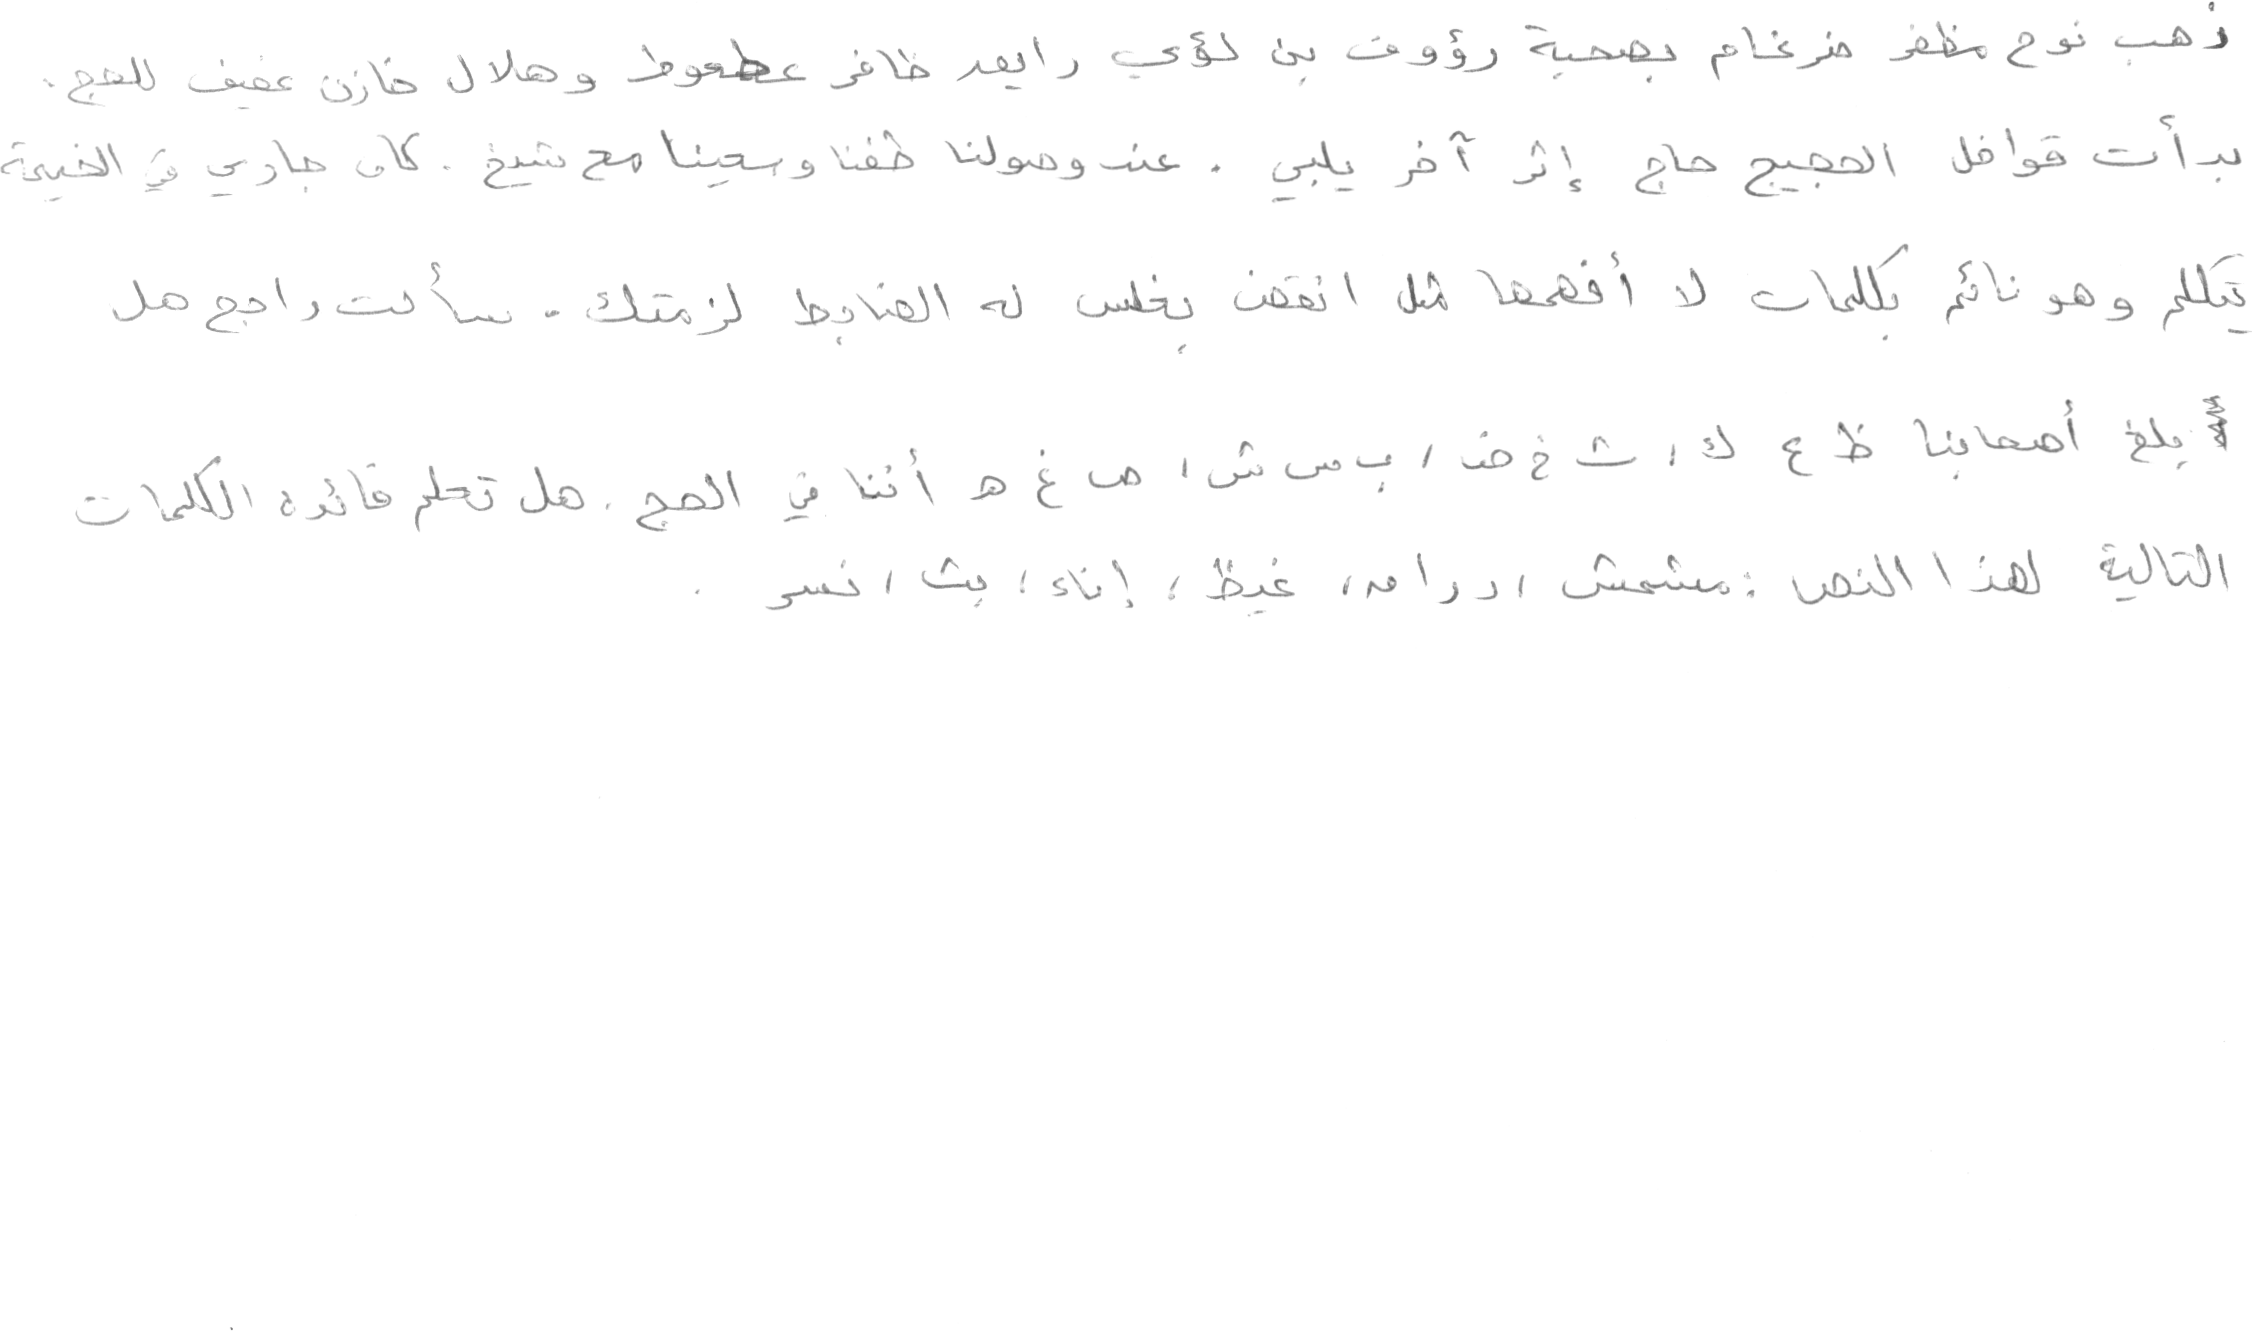 ذهب نوح مظفر ضرغام بصحبة رؤوف بن لؤي رايعد ظافر عطعوط وهلال خازن عفيف للحج.
بدأت قوافل الحجيج حاج إثر آخر يلبي . عند وصولنا طفنا وسعينا مع شيخ . كان جاري في الخيمة
يتكلم وهو نائم بكلمات لا أفهمها مثل انقض بخلس له الضابط لزمتك . سألت راجح هل
يلغ أصحابنا ظ ع ك ، ث خ ض ، ب س ش ، ص غ ه أننا في الحج . هل تعلم فائدة الكلمات
التالية لهذا النص : مشمش ، درامه ، غيظ ، إناء ، بث ، نسر .